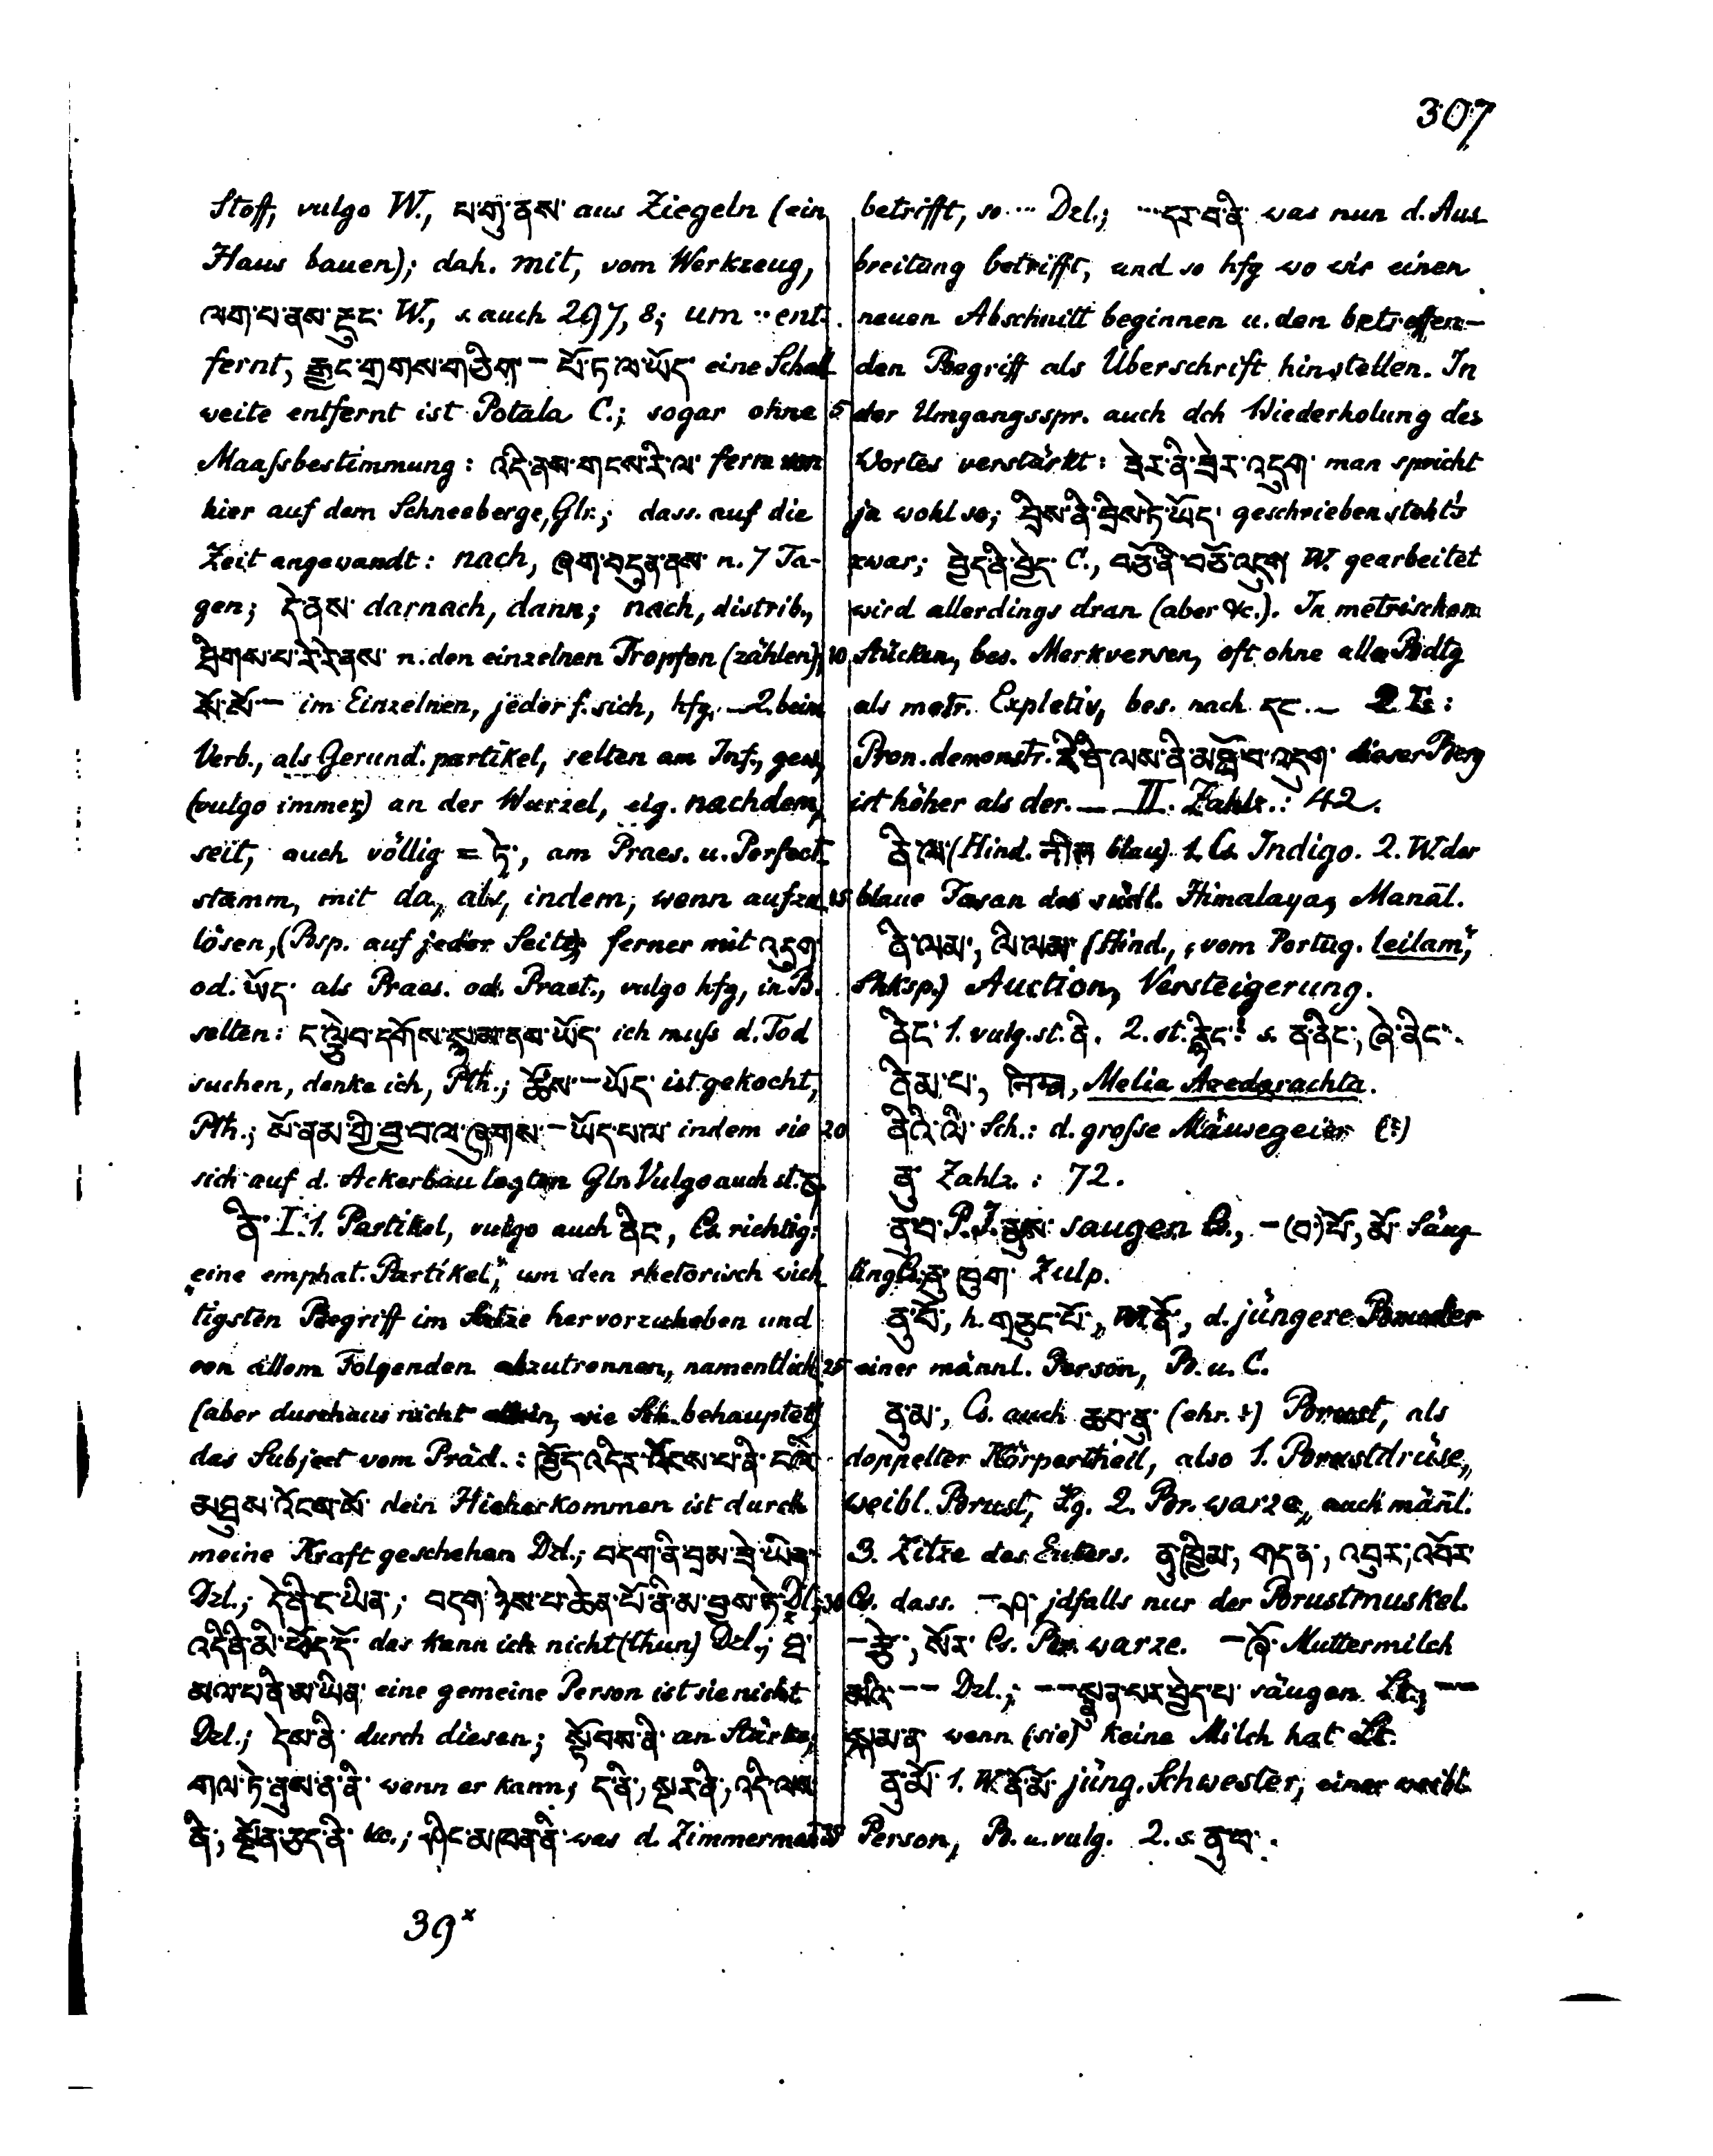 307
Stoff, vulgo W., ཕ་གུ་ནས་ aus Ziegeln (ein
Haus bauen); dah. mit, vom Werkzeug,
ལག་པ་ནས་རྡུང་ W., s. auch 297, 8; um ·· ent-
fernt, རྒྱང་གྲགས་གཅིག་ – པོ་ཏ་ལ་ཡོད་ eine Schall
weite entfernt ist Potāla C.; sogar ohne
Maaſsbestimmung: འདི་ནས་གངས་རི་ལ་ fern von
hier auf dem Schneeberge, Glr.; dass. auf die
Zeit angewandt: nach, ཞག་བདུན་ནས་ n. 7 Ta-
gen; དེ་ནས་ darnach, dann; nach, distrib.,
ཐིགས་པ་རེ་རེ་ནས་ n. den einzelnen Tropfen (zählen),
སོ་སོ་ – im Einzelnen, jeder f. sich, hfg. — 2. beim
Verb., als Gerund. partikel, selten am Inf., gew.
(vulgo immer) an der Wurzel, eig. nachdem,
seit, auch völlig = ཏེ་, am Praes. u. Perfect-
stamm, mit da, als, indem, wenn aufzu
lösen, (Bsp. auf jeder Seite); ferner mit འདུག་
od. ཡོད་ als Praes. od. Praet., vulgo hfg, in B.
selten: ང་ལྕེབ་དགོས་སྙམ་ནས་ཡོད་ ich muſs d. Tod
suchen, denke ich, Pth.; ཚོས་ – ཡོད་ ist gekocht,
Pth.; སོ་ནམ་གྱི་བྱ་བ་ལ་ཞུགས་ – ཡོད་པ་ལ་ indem sie
sich auf d. Ackerbau legten Glr. Vulgo auch st. ན.
ནི་ I. 1. Partikel, vulgo auch ནིང་, Cs. richtig:
„eine emphat. Partikel“, um den rhetorisch wich
tigsten Begriff im Satze hervorzuheben und
von allem Folgenden abzutrennen, namentlich
(aber durchaus nicht allein, wie Sch. behauptet)
das Subject vom Präd.: ཁྱོད་འདིར་འོངས་པ་ནི་ངའི་
མཐུས་འོངས་སོ་ dein Hieherkommen ist durch
meine Kraft geschehen Dzl.; བདག་ནི་བྲམ་ཟེ་ཡིན་
Dzl.; དེ་ནི་ང་ཡིན་; བདག་ཉེས་པ་ཆེན་པོ་ནི་མ་བྱས་ཏེ་ Dzl.;
འདི་ནི་མི་ཕོད་དོ་ das kann ich nicht (thun) Dzl.; ཐ་
མལ་པ་ནི་མ་ཡིན་ eine gemeine Person ist sie nicht
Dzl.; དེས་ནི་ durch diesen; སྟོབས་ནི་ an Stärke;
གལ་ཏེ་ནུས་ན་ནི་ wenn er kann; ད་ནི་, སྔར་ནི་, འདི་ལས་
ནི་, སྔོན་ཆད་ནི་ &c.; ཤིང་མཁན་ནི་ was d. Zimmermann
39ˣ
betrifft, so ··· Dzl.; ···དར་བ་ནི་ was nun d. Aus
breitung betrifft, und so hfg wo wir einen
neuen Abschnitt beginnen u. den betreffen-
den Begriff als Überschrift hinstellen. In
5 der Umgangsspr. auch dch Wiederholung des
Wortes verstärkt: ཟེར་ནི་ཟེར་འདུག་ man spricht
ja wohl so; བྲིས་ནི་བྲིས་ཏེ་ཡོད་ geschrieben steht's
zwar; བྱེད་ནི་བྱེད་ C., བཅོ་ནི་བཅོ་འདུག W. gearbeitet
wird allerdings dran (aber &c.). In metrischen
10 Stücken, bes. Merkversen, oft ohne alle Bdtg
als metr. Expletiv, bes. nach དང་. —
Pron. demonstr. རི་ནི་ལས་ནི་མཐོ་བ་འདུག་ dieser Berg
ist höher als der. — II. Zahlz.: 42.
ནི་ལ་ (Hind. नील blau) 1. Cs. Indigo. 2. W. der
15 blaue Fasan des südl. Himalaya, Manāl.
ནི་ལམ་, ལི་ལམ་ (Hind., „vom Portug. leilam“,
Shksp.) Auction, Versteigerung.
ནིང་ 1. vulg. st. ནི་. 2. st. རྙིང་: s. ན་ནིང་, ཞེ་ནིང་.
ནིམ་པ་, निम्ब, Melia Azedarachta.
20 ནིའི་ལི་ Sch.: d. groſse Mäusegeier (?)
ནུ་ Zahlz.: 72.
ནུ་བ་ P. F. ནུས་ saugen Cs., – (བ་)པོ་, མོ་ Säug
ling Cs. ནུ་ཁུག་ Zulp.
ནུ་བོ་, h. གཅུང་པོ་, W. ནོ་, d. jüngere Bruder
25 einer männl. Person, B. u. C.
ནུ་མ་, Cs. auch ཆབ་ནུ་ (ehr.?) Brust, als
doppelter Körpertheil, also 1. Brustdrüse,
weibl. Brust, Lg. 2. Br. warze, auch männl.
3. Zitze des Euters. ནུ་ཁྱིམ་, གདན་, འབུར་, འབོར་
30 Cs. dass. –ཤ་ jdfalls nur der Brustmuskel.
–རྩེ་, སོར་ Cs. Br. warze. –ཞོ་ Muttermilch
མའི་ –– Dzl.; ––སྣུན་པར་བྱེད་པ་ säugen Lt.; ––
སྐམ་ན་ wenn (sie) keine Milch hat Lt.
ནུ་མོ་ 1. W. ནོ་མོ་ jüng. Schwester; einer weibl.
35 Person, B. u. vulg. 2. s. ནུ་བ་.